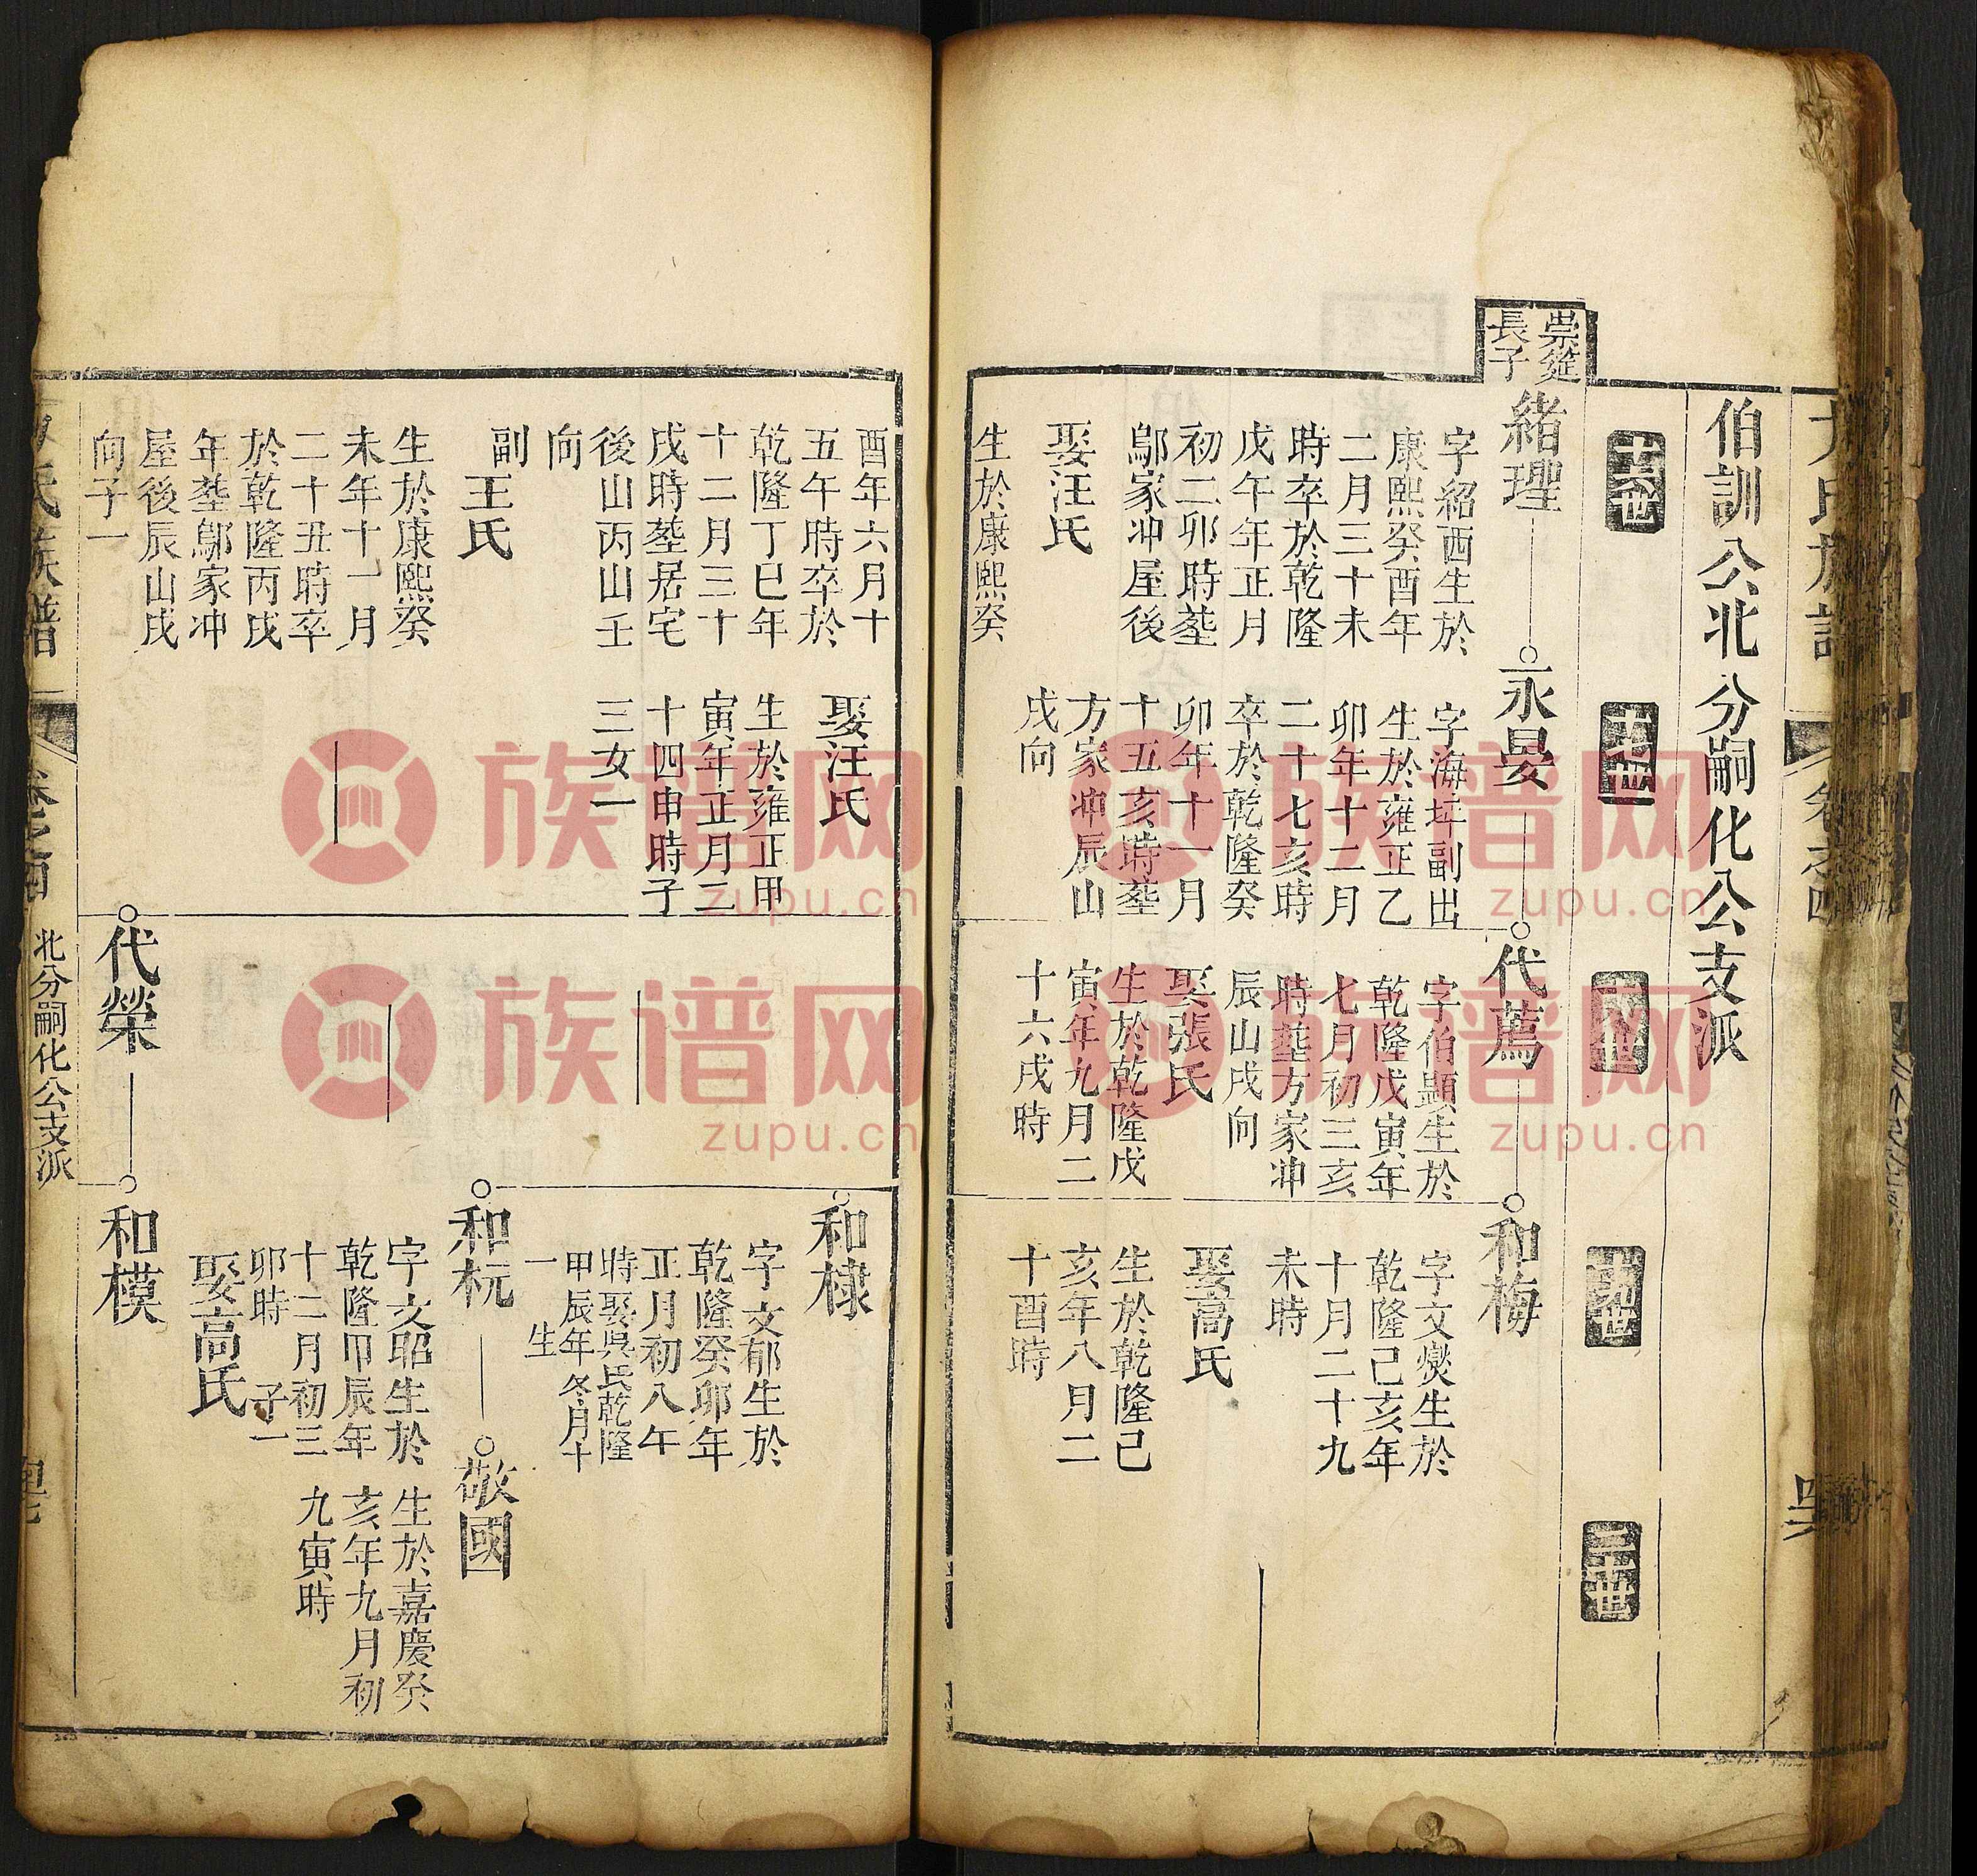 伯訓公北分嗣化公支派
十六世
十七世
十八世
十九世
二十世
崇筵
長子
緒理
字紹酉生於
康熙癸酉年
二月三十未
時卒於乾隆
戊午年正月
初二卯時塟
鄔家冲屋後
娶汪氏
生於康熙癸
永晏
字海坪副出
生於雍正乙
卯年十二月
二十七亥時
卒於乾隆癸
卯年十一月
十五亥時塟
方家冲辰山
戌向
代薦
字伯顯生於
乾隆戊寅年
七月初三亥
時塟方家冲
辰山戌向
娶張氏
生於乾隆戊
寅年九月二
十六戌時
和梅
字文爕生於
乾隆己亥年
十月二十九
未時
娶高氏
生於乾隆己
亥年八月二
十酉時
酉年六月十
五午時卒於
乾隆丁巳年
十二月三十
戌時塟居宅
後山丙山壬
向
副王氏
生於康熙癸
未年十一月
二十丑時卒
於乾隆丙戌
年塟鄔家冲
屋後辰山戌
向子一
娶汪氏
生於雍正甲
寅年正月二
十四申時子
三女一
代榮
和棣
字文郁生於
乾隆癸卯年
正月初八午
時娶吳氏乾隆
甲辰年冬月十
一生
和杬
字文昭生於
乾隆甲辰年
十二月初三
卯時 子一
娶高氏
敬國
生於嘉慶癸
亥年九月初
九寅時
和模
北分嗣化公支派
族谱网
zupu.cn
族谱网
zupu.cn
族谱网
zupu.cn
族谱网
zupu.cn